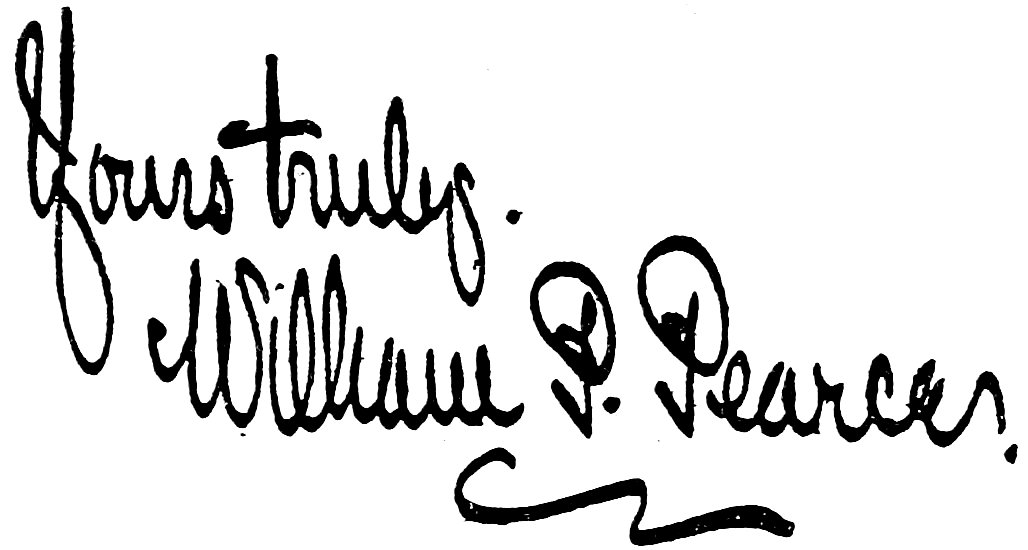 Yours truly.
William P. Pearce.